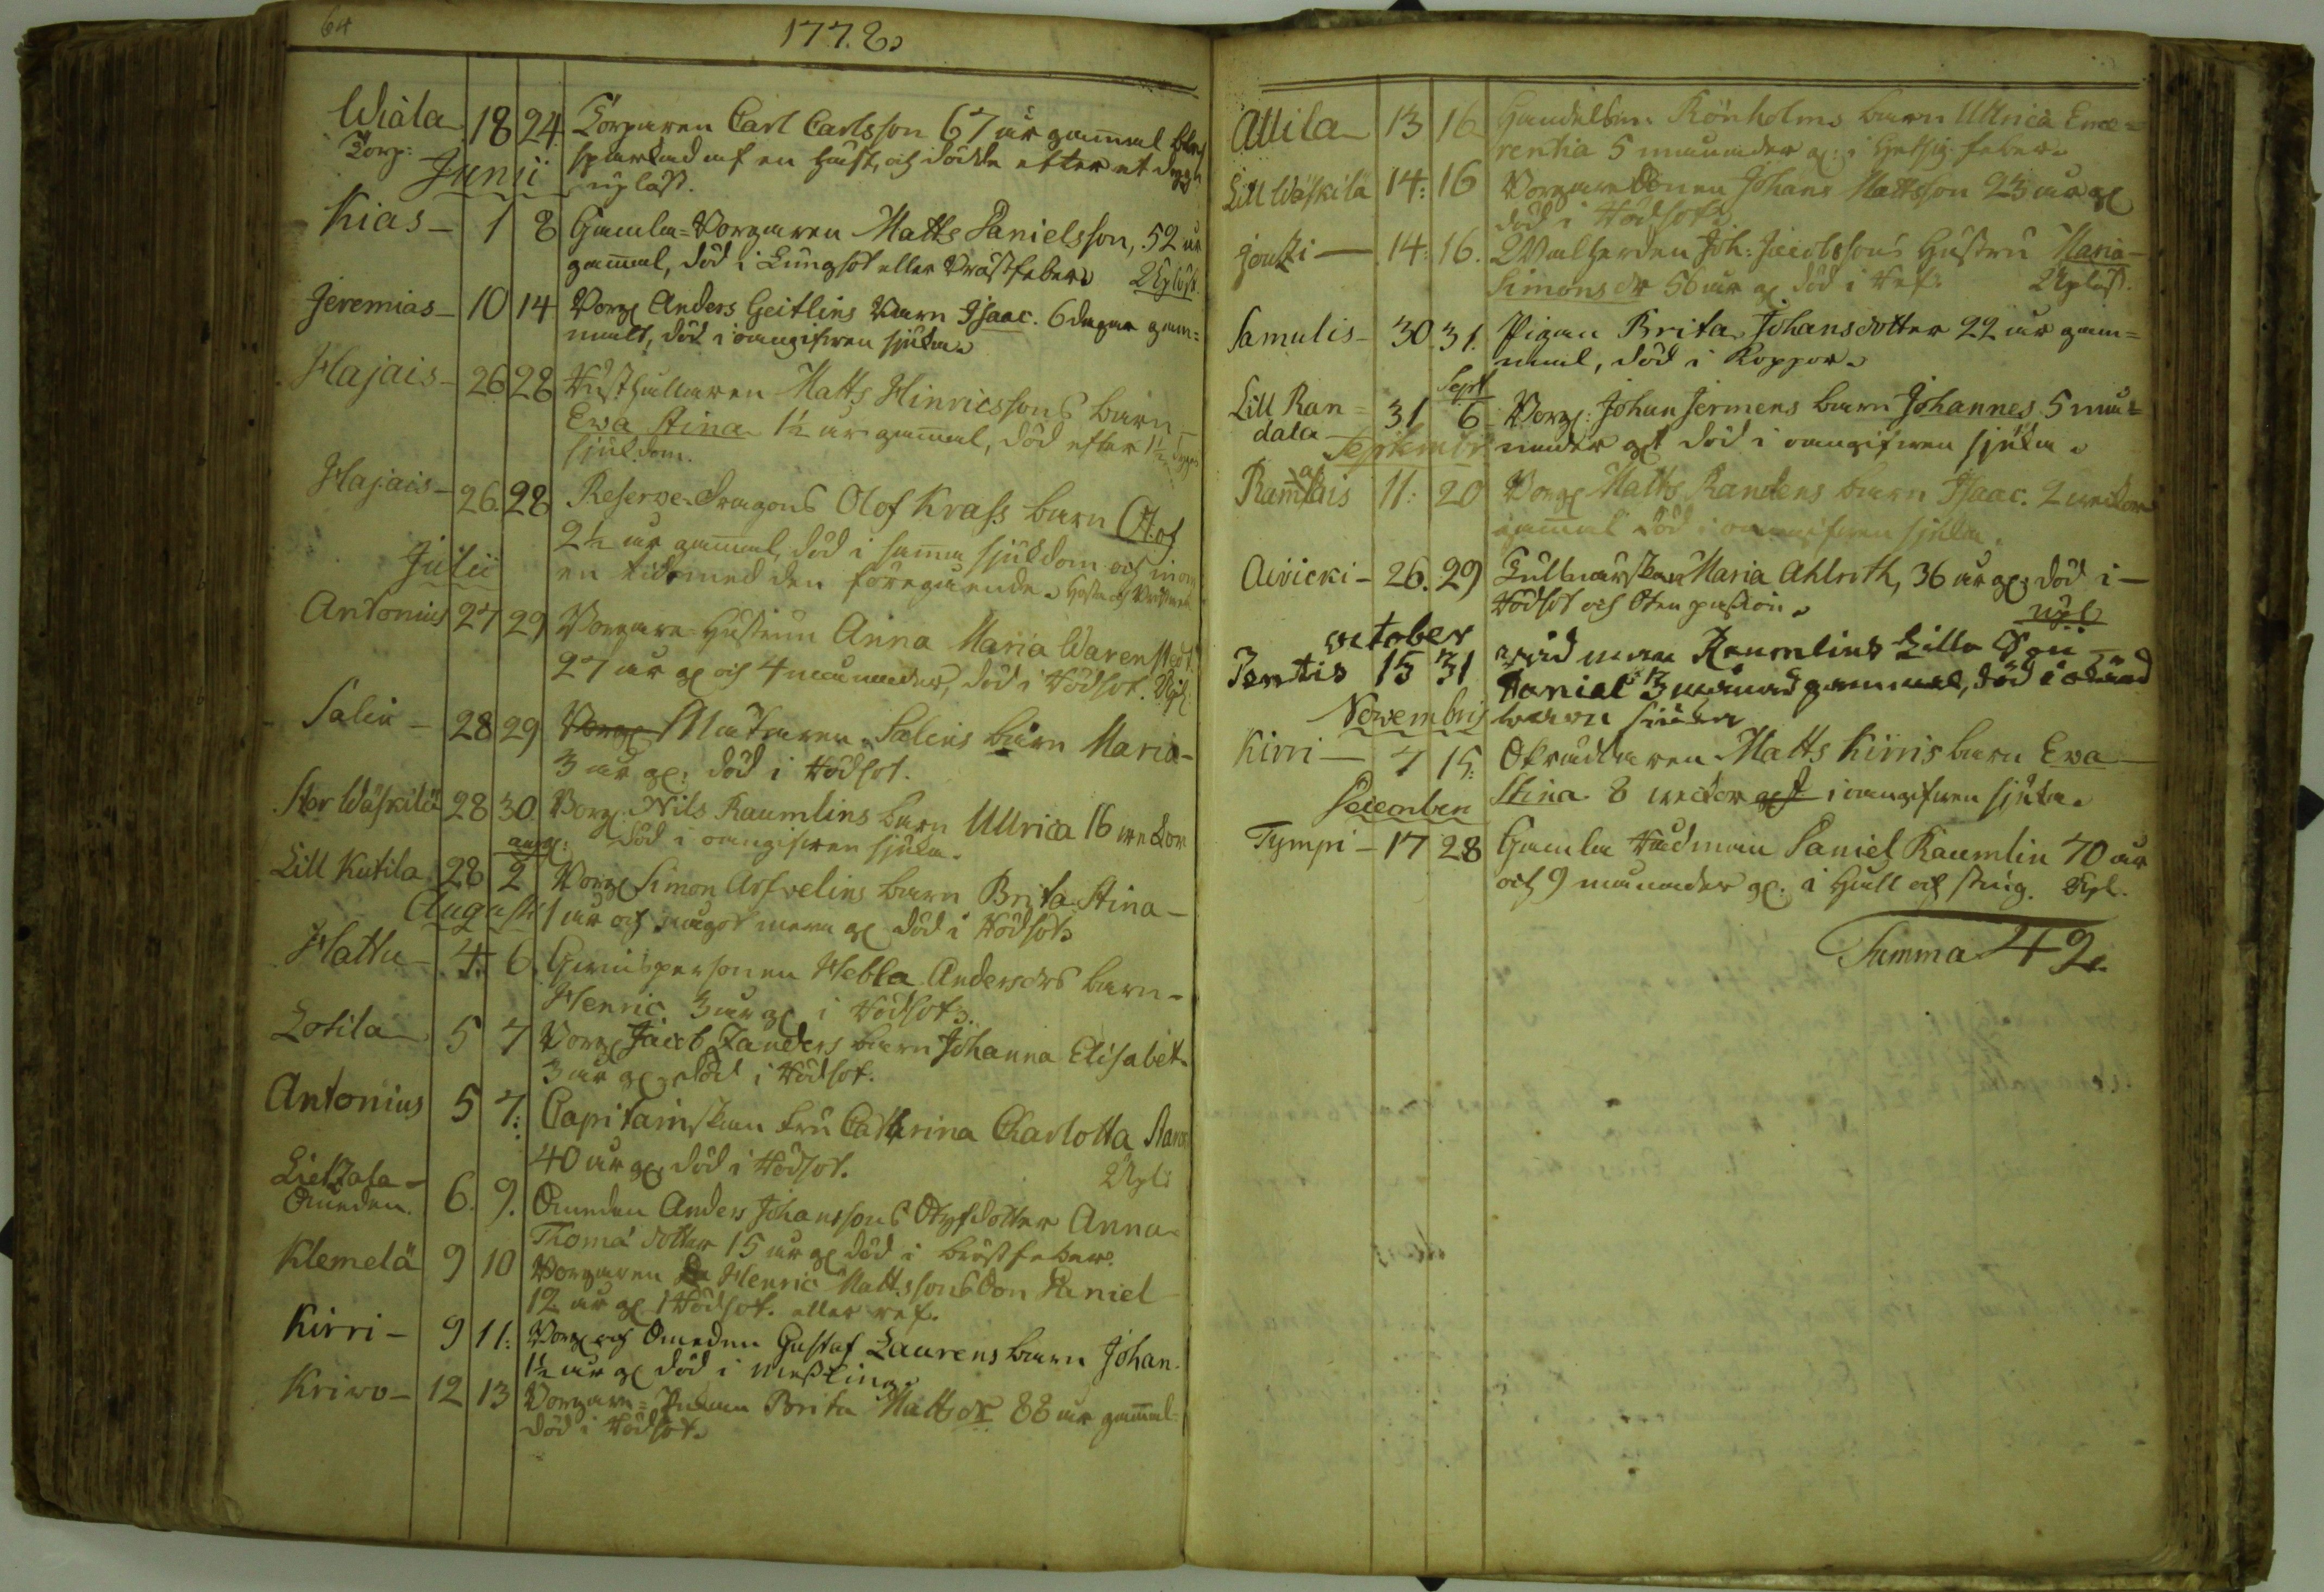 64
1778.
Wiala 18 24 Torparen Carl Carlsson 67 år gammal blef
Torp: sparkad af en häst, och dödde efter et dygn
Junii upläst.
Kias 1 8 Gamla Borgaren Matts Danielsson, 52 år
gammal, död i Lungsot eller Bröstfeber. Upläst.
Jeremias 10 14 Borg. Anders Geitlins Barn Isaac. 6 dagar gam=
malt, död i oangifwen sjuka.
Hajais 26 28 Husthållaren Matts Hinricssons barn
Ewa Stina 1½ år gammal, död efter 1½ dygns
sjukdom.
Hajais 26. 28 Reserve-Dragons Olof Krass barn Olof
2½ år gammal, död i samma sjukdom och inom
en tid med den föregående.
Julii
Antonius 27 29 Borgare Hustrun Anna Maria Warenstedt
27 år gl och 4 månader, död i Rödsot. Upl.
Salin 28 29 Borg. Målaren Salins barn Maria
3 år gl. död i Rödsot.
Stor Wäskilä 28 30. Borg. Nils Raumlins barn Ullrica 16 weckor
aug: död i oangifwen sjuka.
Lill Katila 28 2 Borg Simon Arfvelins barn Brita Stina
August 1 år och något mera gl död i Rödsot.
Hattu 4. 6. Qwinspersonen Hebla Andersdrs barn
Henric 3 år gl i Rödsot.
Lotila 5 7 Borg Jacob Zanders barn Johanna Elisabet
3 år gl. död i Rödsot.
Antonius 5 7: Capitainskan Fru Catharina Charlotta
40 år gl. död i Rödsot. Upl:
Lietzala
Smeden. 6. 9. Smeden Anders Johanssons Styfdotter Anna
Thomædotter 15 år gl död i bröstfeber.
Klemelä 9 10 Borgaren Henric Mattssons Son Daniel
12 år gl i Rödsot. eller ref.
Kirri 9 11: Borg och Smeden Gustaf Laurens barn Johan
1½ år gl död i Messling.
Kriwo 12 13 Borgare=Enkan Brita Mattsdr 88 år gammal
död i Rödsot.
Attila 13 16 Handelsm. Rönholms barn Ullrica Eme=
rentia 5 månader gl: i Hetsig feber.
Lill Wäskilä 14: 16 Borgare Sonen Johans Mattsson 23 år gl
död i Rödsot.
Jouzi 14: 16. Joh: Jacobssons Hustru Maria
Simonsdr 50 år gl död i Ref. Upläst.
Samulis 30. 31. Pigan Brita Johansdotter 22 år gam=
mal, död i Koppor.
Sept
Lill Ran= 31 6 Borg: Johan Jermens barn Johannes 5 må=
dala nader glt död i oangifwen sjuka.
Septembr
Ramlais 11: 20 Borg Matts Randens barn Isaac. 2 weckor
gammal död i oangifwen sjuka.
Aivicki 26. 29 Tullnärskan Maria Ahlroth, 36 år gl. död i
Rödsot och Sten passion. upl
october
Pentis 15 31 Raumlins Lilla Son
Daniel 3 månad gammal, död i okänd
Novembris barn siuka
Kirri 7 15: Matts Kirris barn Ewa
Stina 8 weckor glt i oangifwen sjuka.
December
Tympi 17 28 Gamla Rådman Daniel Raumlin 70 år
och 9 månader gl. i Håll och styng. Upl.
Summa 42.